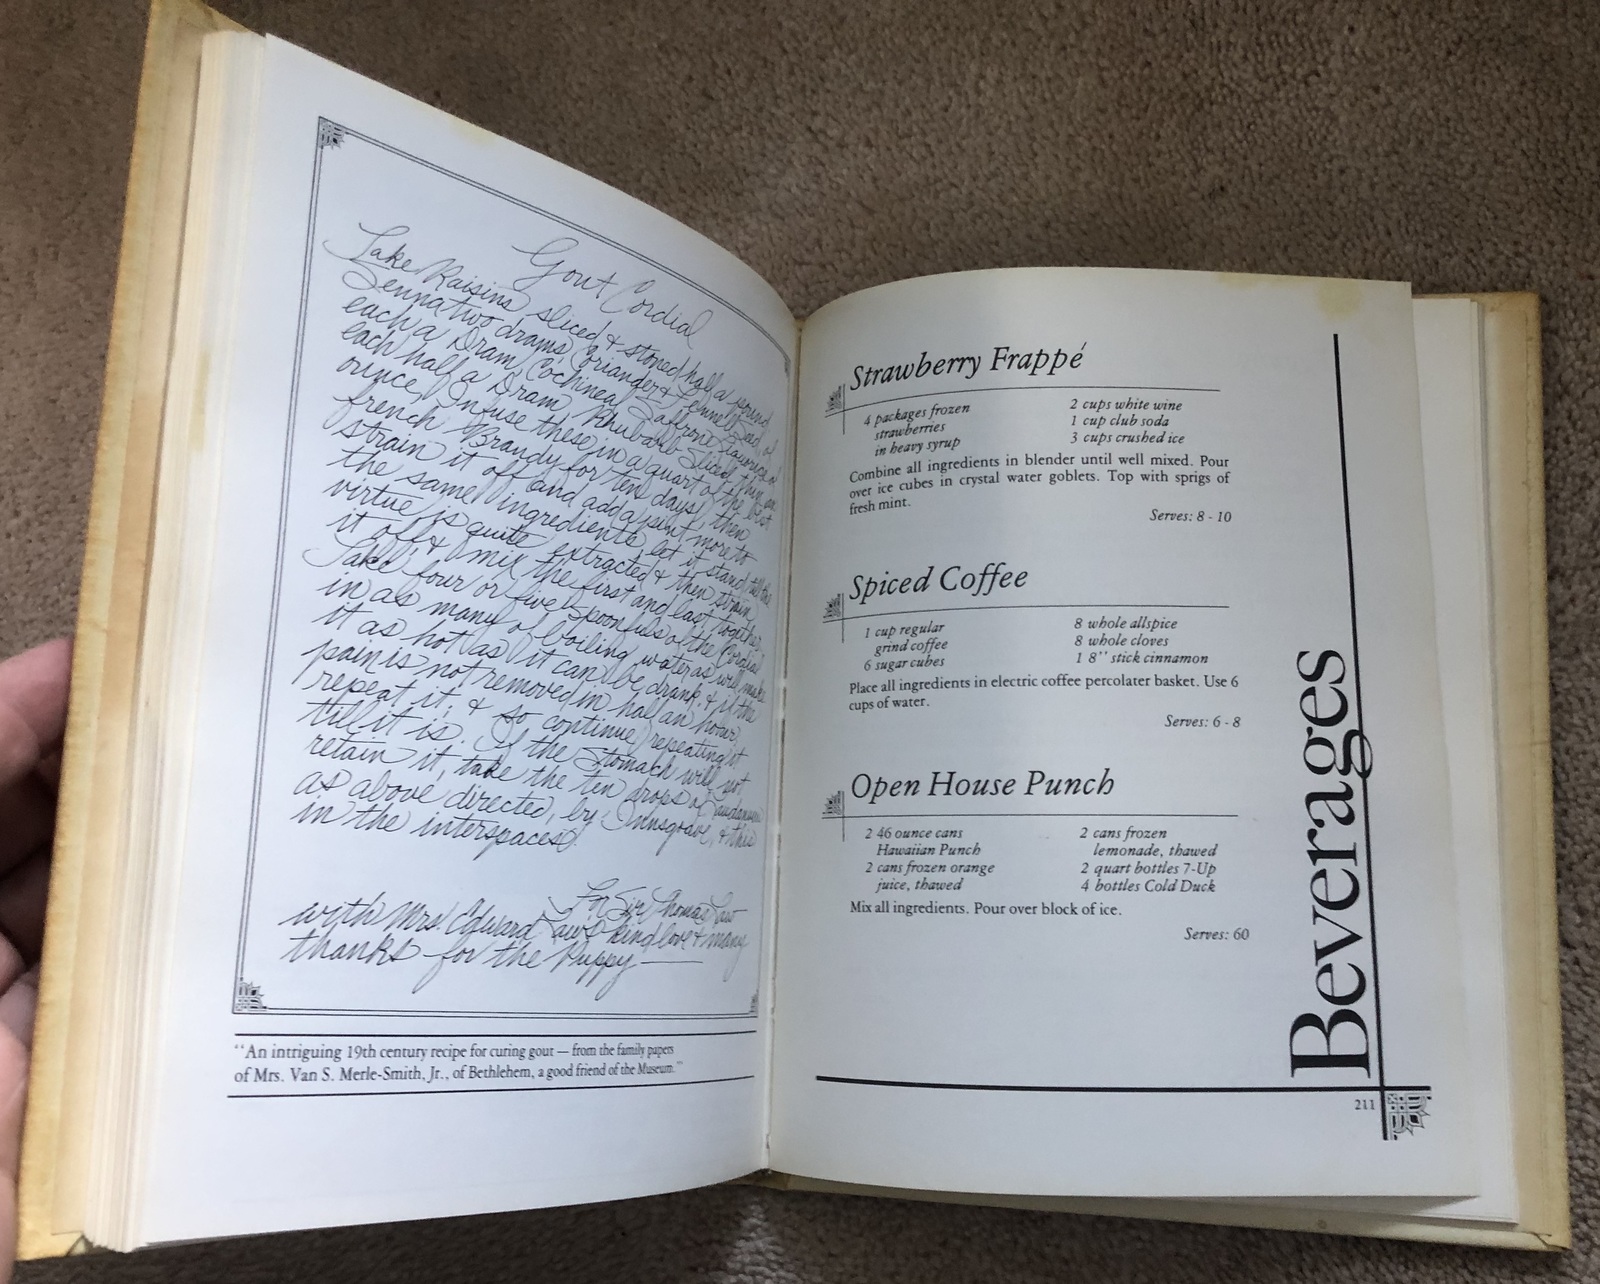 Gout Cordial
Take Raisins sliced & stoned half a pound
Senna two drams, Coriander & Fennel Seed, of
each a Dram, Cochineal, Saffron, Liquorice, of
each half a Dram, Rhubarb Sliced thin, an
ounce, Infuse these in a quart of the best
french Brandy for ten days, then
strain it off and add a pint more to
the same ingredients, let it stand till the
virtue is quite extracted & then strain
it off & mix the first and last together.
Take four or five Spoonfuls of the Cordial
in as many of boiling water as will make
it as hot as it can be drank, & if the
pain is not removed in half an hour,
repeat it; & so continue repeating it
till it is. If the Stomach will not
retain it, take the ten drops of Laudanum
as above directed, by & this
in the interspaces.
For Sir Thomas Law
with Mrs. Edward Law's kind love & many
thanks for the Puppy
"An intriguing 19th century recipe for curing gout — from the family papers
of Mrs. Van S. Merle-Smith, Jr., of Bethlehem, a good friend of the Museum."
Strawberry Frappé
4 packages frozen
strawberries
in heavy syrup
2 cups white wine
1 cup club soda
3 cups crushed ice
Combine all ingredients in blender until well mixed. Pour
over ice cubes in crystal water goblets. Top with sprigs of
fresh mint.
Serves: 8 - 10
Spiced Coffee
1 cup regular
grind coffee
6 sugar cubes
8 whole allspice
8 whole cloves
1 8" stick cinnamon
Place all ingredients in electric coffee percolater basket. Use 6
cups of water.
Serves: 6 - 8
Open House Punch
2 46 ounce cans
Hawaiian Punch
2 cans frozen orange
juice, thawed
2 cans frozen
lemonade, thawed
2 quart bottles 7-Up
4 bottles Cold Duck
Mix all ingredients. Pour over block of ice.
Serves: 60
Beverages
211